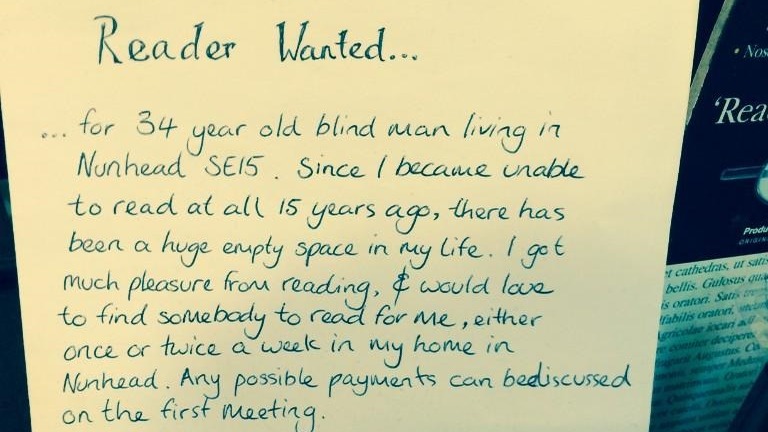 Reader Wanted...
... for 34 year old blind man living in
Nunhead SE15. Since I became unable
to read at all 15 years ago, there has
been a huge empty space in my life. I got
much pleasure from reading, & would love
to find somebody to read for me, either
once or twice a week in my home in
Nunhead. Any possible payments can be discussed
on the first meeting.
• Nos
'Rea
Produ
ORIGIN
t cathedras, ut satis
bellis. Gulosus qua
is oratori. Satis
fabilis oratori,
Agricolae iocari